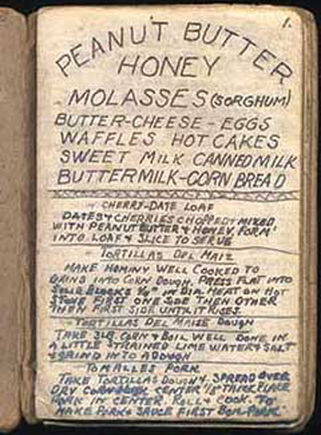 1.
PEANUT BUTTER
HONEY
MOLASSES (SORGHUM)
BUTTER-CHEESE-EGGS
WAFFLES HOT CAKES
SWEET MILK CANNED MILK
BUTTERMILK-CORN BREAD
CHERRY-DATE LOAF
DATES & CHERRIES CHOPPED & MIXED
WITH PEANUT BUTTER & HONEY. FORM
INTO LOAF & SLICE TO SERVE
TORTILLAS DEL MAIZ
MAKE HOMINY WELL COOKED TO
GRIND INTO CORN DOUGH. PRESS FLAT INTO
IN DIA. HEAT ON HOT
STONE FIRST ONE SIDE THEN OTHER
THEN FIRST SIDE UNTIL IT RISES.
TORTILLAS DEL MAIZE DOUGH
TAKE 3LB. CORN & BOIL WELL DONE IN
A LITTLE STRAINED LIME WATER & SALT
& GRIND INTO A DOUGH
TOMALLES PORK
TAKE TORTILLAS DOUGH & SPREAD OVER
DRY CORN CENTER 1/8" THICK PLACE
PORK IN CENTER ROLL & COOK. TO
MAKE PORK & SAUCE FIRST BOIL PORK